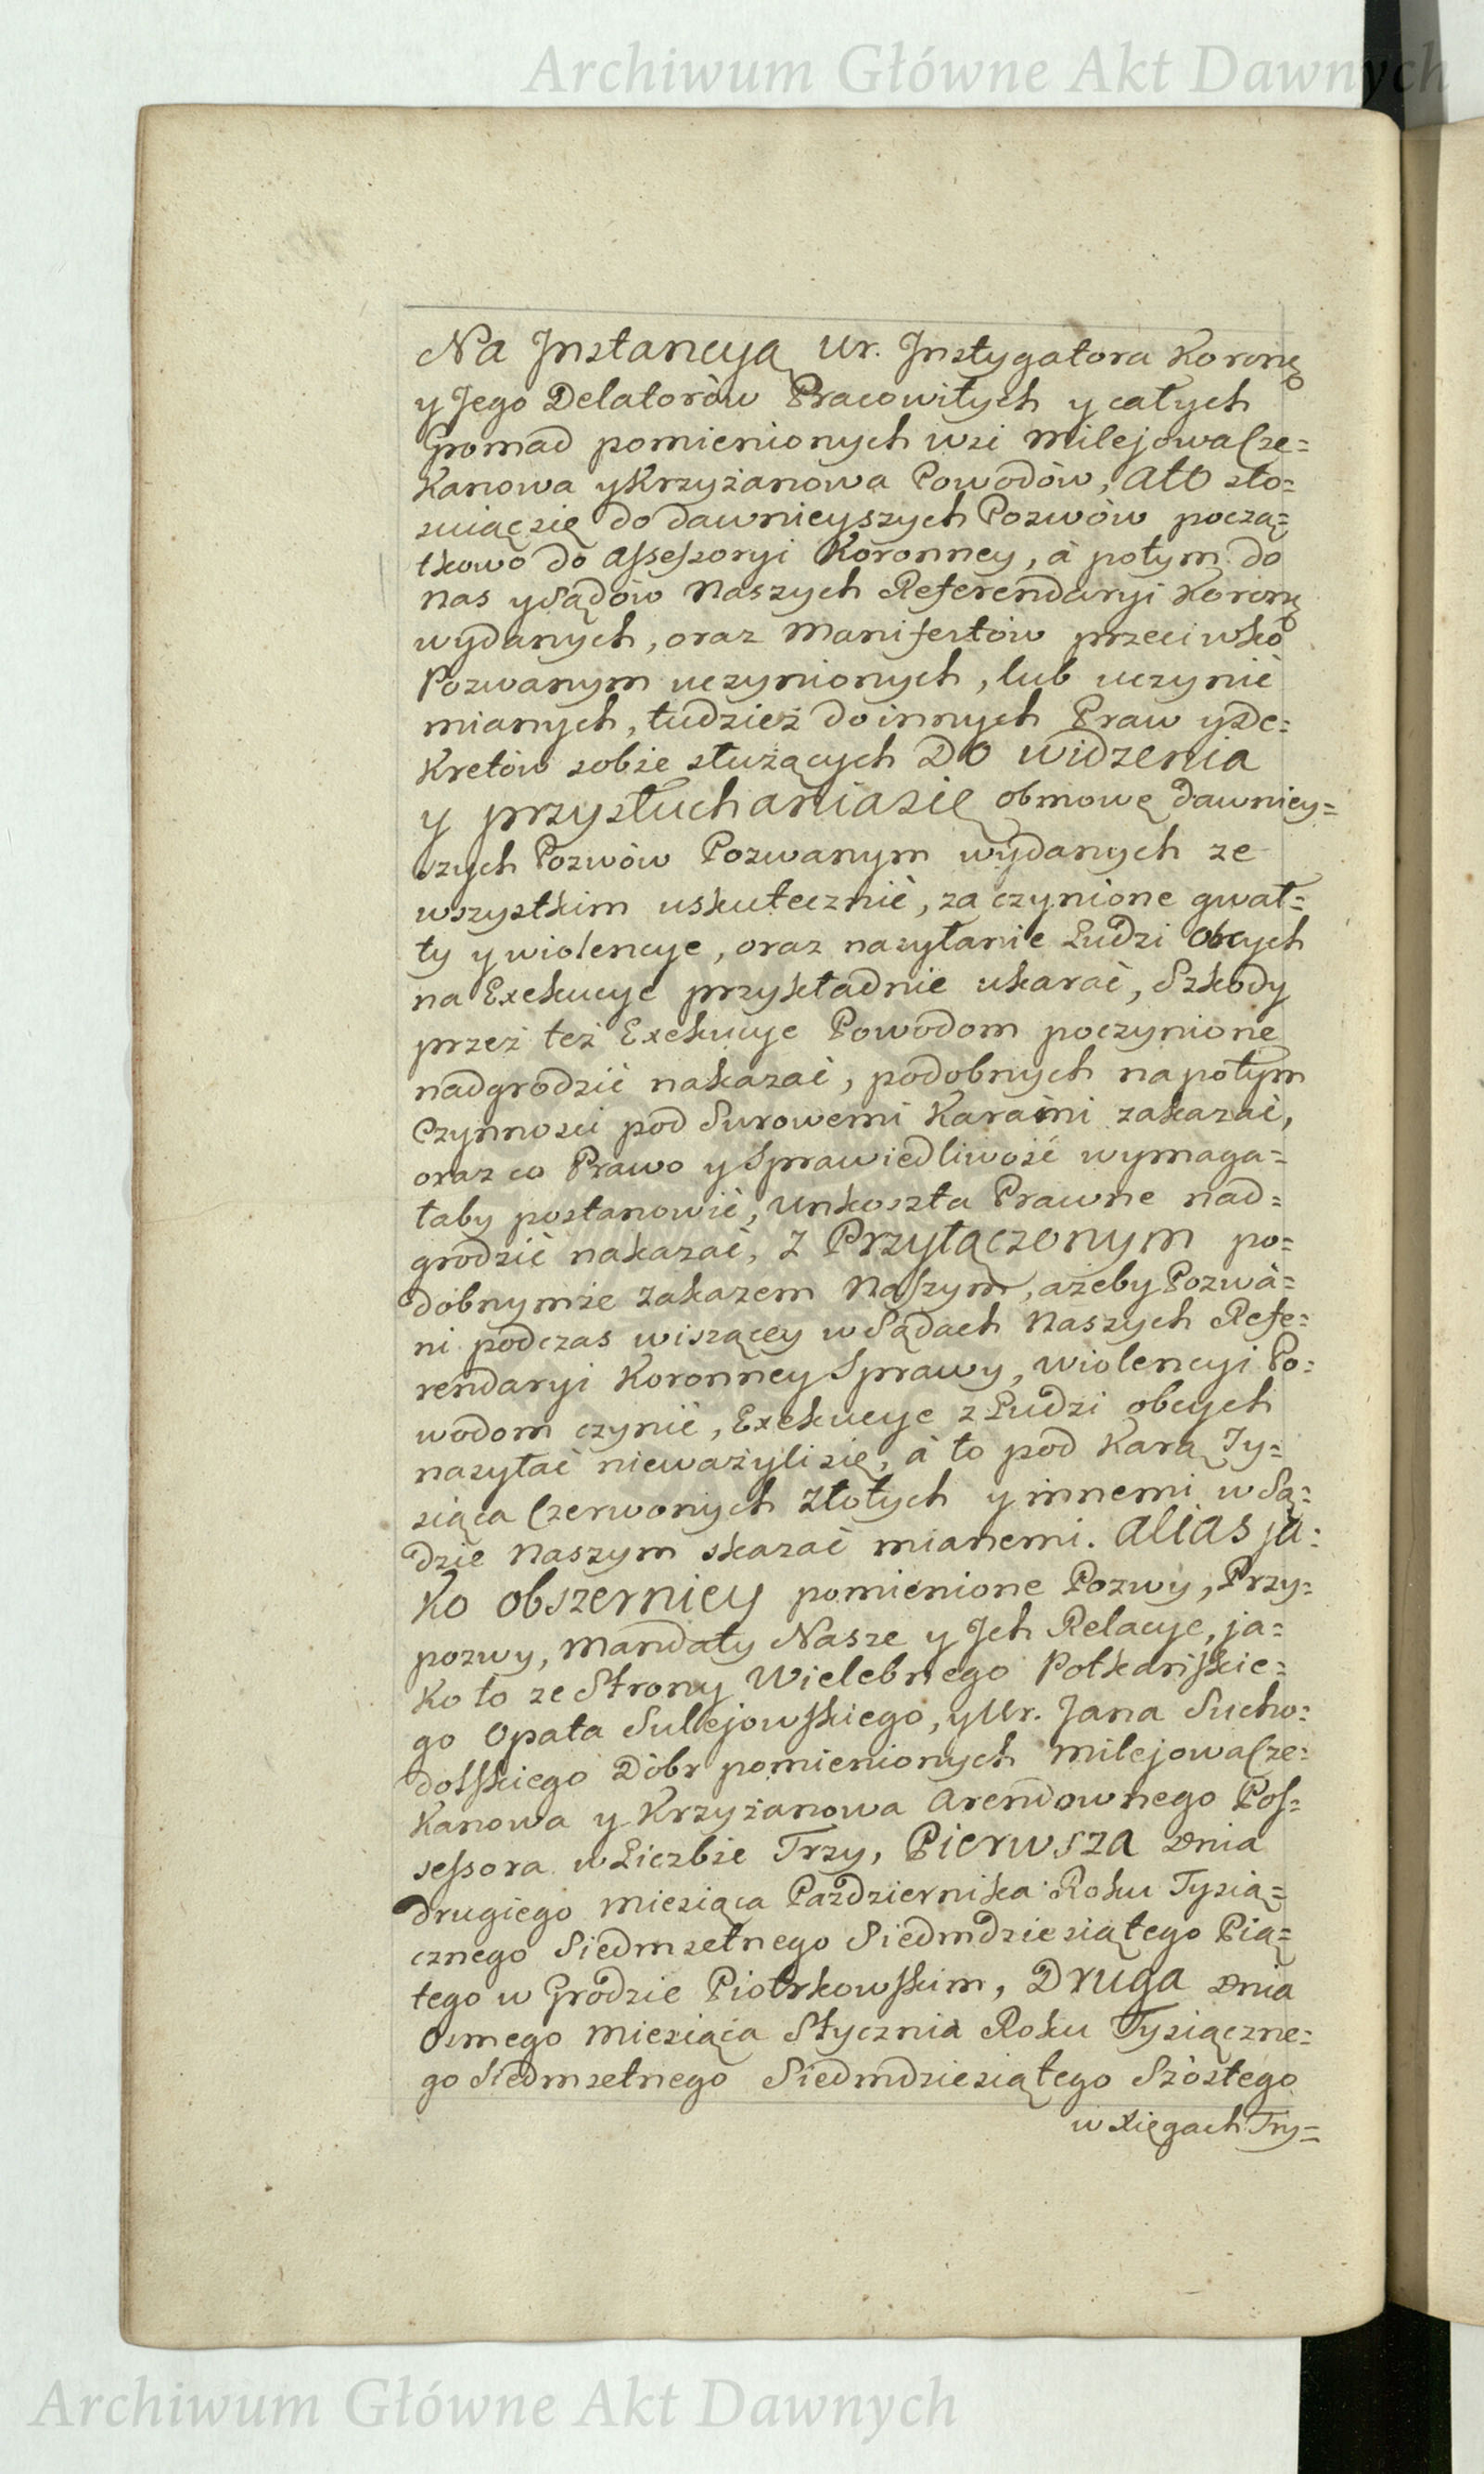 Archiwum Główne Akt Dawnych
Na Instancyą Ur. Instygatora Koronę
y Jego Delatorów Pracowitych y całych
Gromad pomienionych wsi Milejowa Cze=
kanowa y Krzyżanowa Powodów, Ato sto=
suiąc się do dawnieyszych Pozwów począ=
tkowo do Assessoryi Koronney, à potym do
nas y Sądów Naszych Referendaryi Koronę
wydanych, oraz Manifestów przeciwko
Pozwanym uczynionych, lub uczynić
mianych, tudzież do innych Praw y De=
kretów sobie służących Do widzenia
y przysłuchania się obmowę dawniey=
szych Pozwów Pozwanym wydanych ze
wszystkim uskutecznić, za czynione gwał=
ty y wiolencye, oraz nasyłanie Ludzi obcych
na Exekucye przykładnie ukarać, Szkody
przez też Exekucye Powodom poczynione
nadgrodzić nakazać, podobnych napotym
Czynnosci pod Surowemi Karami zakazać,
oraz co Prawo y Sprawiedliwość wymaga=
łaby postanowić, Unkoszta Prawne nad=
grodzić nakazać, z Przyłączonym po=
dobnymże zakazem Naszym, ażeby Pozwa=
ni podczas wiszącey w Sądach Naszych Refe=
rendaryi Koronney Sprawy, wiolencyi Po=
wodom czynić, Exekucye z Ludzi obcych
nasyłać nieważyli się, à to pod Karą Ty=
siąca Czerwonych Złotych y innemi w Są=
dzie Naszym skazać mianemi. Alias ja=
ko obszerniey pomienione Pozwy, Przy=
pozwy, Mandaty Nasze y Ich Relacye, ja=
ko to ze Strony Wielebnego Potkańskie=
go Opata Sulejowskiego, y Ur. Jana Sucho=
dolskiego Dóbr pomienionych Milejowa Cze=
kanowa y Krzyżanowa Arendownego Pos=
sessora w Liczbie Trzy, Pierwsza dnia
drugiego miesiąca Pazdziernika Roku Tysią=
cznego Siedmsetnego Siedmdziesiątego Pią=
tego w Grodzie Piotrkowskim, Druga dnia
Osmego Miesiąca Stycznia Roku Tysiączne=
go Siedmsetnego Siedmdziesiątego Szóstego
w Xięgach Try=
Archiwum Główne Akt Dawnych